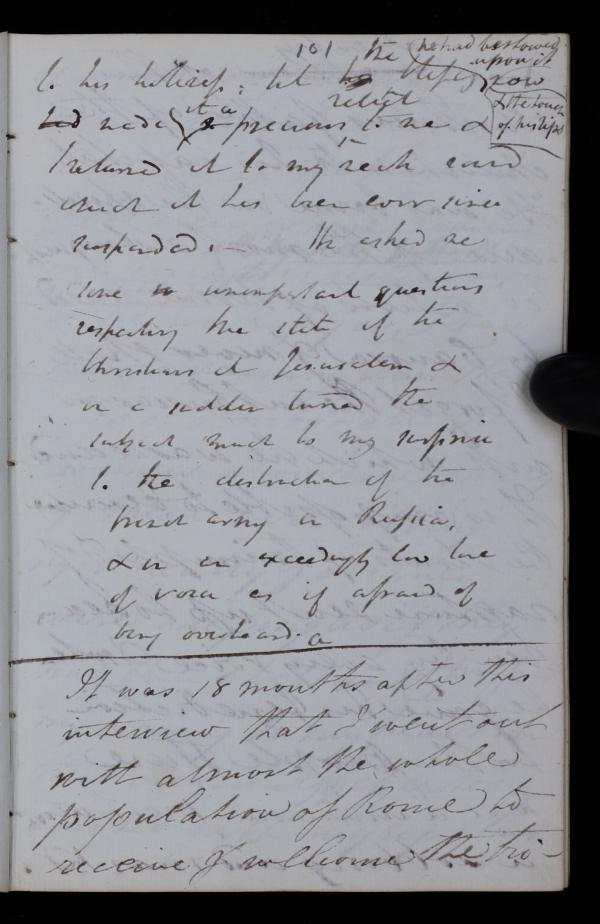 101
the (he had bestowed
to his holiness; but his blessing upon it now
relict
had made it a precious to me & & the touch
of his lips
I returned it to my neck round
which it has been ever since
suspended. — He asked me
some unimportant questions
respecting the state of the
Christians at Jerusalem &
on a sudden turned the
subject much to my surprise
to the destruction of the
french army in Russia,
& in an exceedingly low tone
of voice as if afraid of
being overheard. a
It was 18 months after this
interview that I went out
with almost the whole
population of Rome to
receive & wellcome the tri-